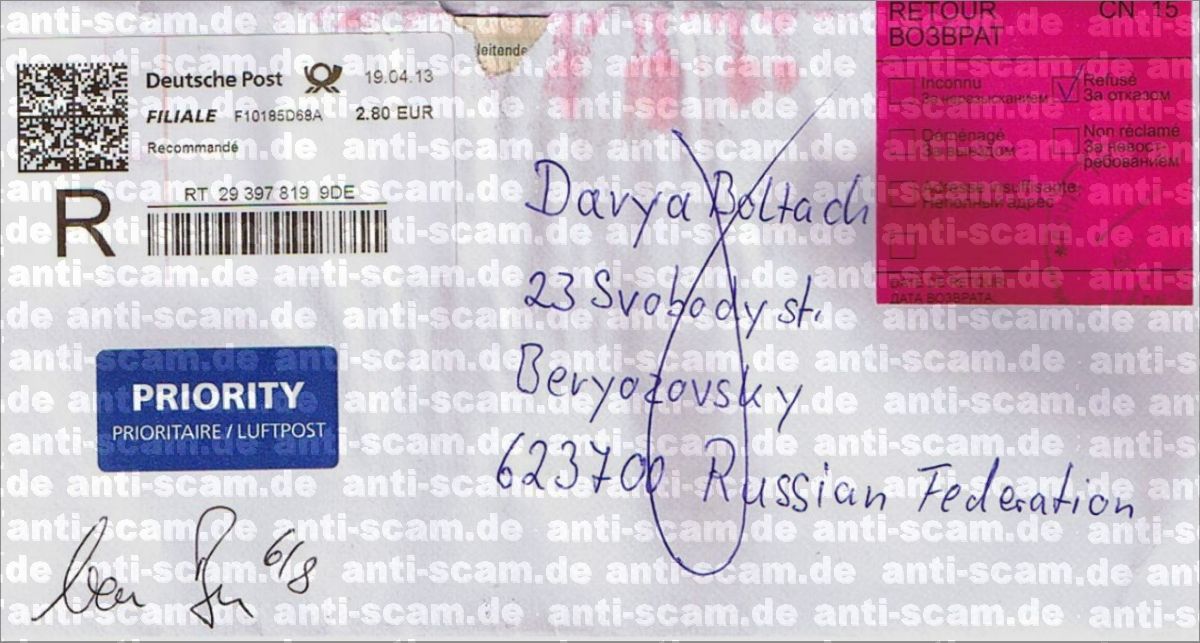 Deutsche Post 19.04.13
FILIALE F10185D68A 2.80 EUR
Recommandé
R
RT 29 397 819 9DE
PRIORITY
PRIORITAIRE / LUFTPOST
6/8
leitende
Davya Boltach
23 Svobody st.
Beryozovsky
623700 Russian Federation
RETOUR CN 15
ВОЗВРАТ
Inconnu
За неразысканием
Refusé
За отказом
Déménagé
За выездом
Non réclamé
За невост-
ребованием
Adresse insuffisante
Неполный адрес
DATE DE RETOUR
ДАТА ВОЗВРАТА
anti-scam.de